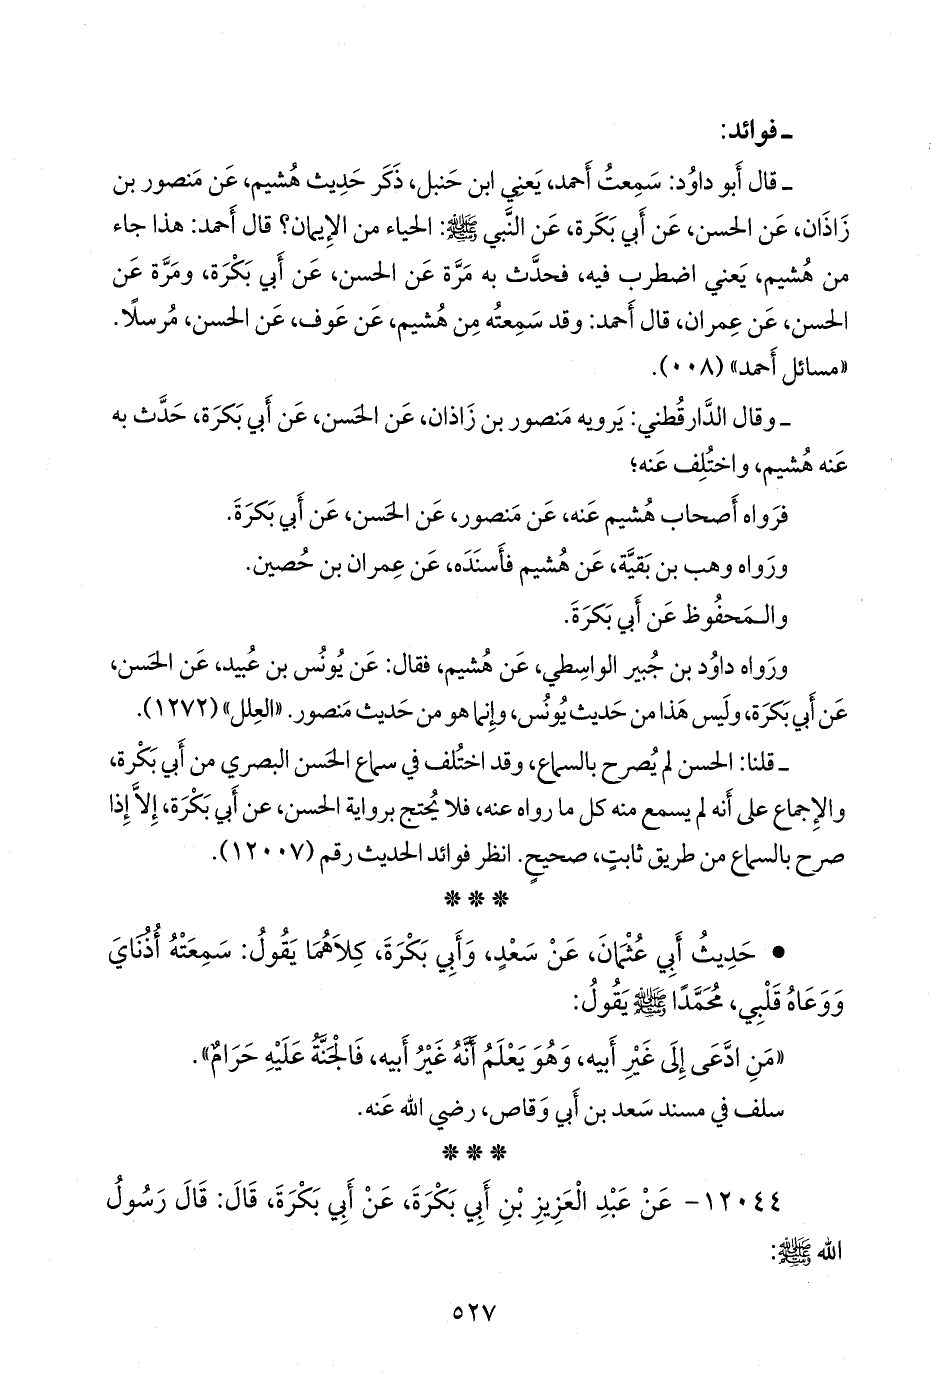 ـ فوائد:
ـ قال أَبو داوُد: سَمِعتُ أَحمد، يَعني ابن حَنبل، ذَكَر حَدِيث هُشيم، عَن مَنصور بن
زَاذَان، عَن الحسن، عَن أَبي بَكَرة، عَن النَّبي ﷺ: الحياء من الإِيمان؟ قال أَحمد: هذا جاء
من هُشيم، يَعني اضطرب فيه، فحدَّث به مَرَّة عَن الحسن، عَن أَبي بَكْرَة، ومَرَّة عَن
الحسن، عَن عِمران، قال أَحمد: وقد سَمِعتُه مِن هُشيم، عَن عَوف، عَن الحسن، مُرسلًا.
«مسائل أَحمد» (٠٠٨).
ـ وقال الدَّارقُطني: يَرويه مَنصور بن زَاذان، عَن الحَسن، عَن أَبي بَكَرَة، حَدَّث به
عَنه هُشيم، واختُلِف عَنه؛
فرَواه أَصحاب هُشيم عَنه، عَن مَنصور، عَن الحَسن، عَن أَبي بَكَرَةَ.
ورَواه وهب بن بَقيَّة، عَن هُشيم فأَسنَدَه، عَن عِمران بن حُصين.
والـمَحفُوظ عَن أَبي بَكرَةَ.
ورَواه داوُد بن جُبير الواسِطي، عَن هُشيم، فقال: عَن يُونُس بن عُبيد، عَن الحَسن،
عَن أَبي بَكرَة، ولَيس هَذا من حَديث يُونُس، وإِنما هو من حَديث مَنصور. «العِلل» (١٢٧٢).
ـ قلنا: الحسن لم يُصرح بالسماع، وقد اختُلف في سماع الحَسن البصري من أَبي بَكْرة،
والإِجماع على أَنه لم يسمع منه كل ما رواه عنه، فلا يُحتج برواية الحسن، عن أَبي بَكْرَة، إِلاَّ إِذا
صرح بالسماع من طريق ثابتٍ، صحيحٍ. انظر فوائد الحديث رقم (١٢٠٠٧).
* * *
• حَدِيثُ أَبِي عُثْمَانَ، عَنْ سَعْدٍ، وَأَبِي بَكْرَةَ، كِلاَهُمَا يَقُولُ: سَمِعَتْهُ أُذُنَايَ
وَوَعَاهُ قَلْبِي، مُحَمَّدًا ﷺ يَقُولُ:
«مَنِ ادَّعَى إِلَى غَيْرِ أَبِيهِ، وَهُوَ يَعْلَمُ أَنَّهُ غَيْرُ أَبِيهِ، فَالْجَنَّةُ عَلَيْهِ حَرَامٌ».
سلف في مسند سَعد بن أَبي وَقاص، رضي الله عَنه.
* * *
١٢٠٤٤- عَنْ عَبْدِ الْعَزِيزِ بْنِ أَبِي بَكْرَةَ، عَنْ أَبِي بَكْرَةَ، قَالَ: قَالَ رَسُولُ
الله ﷺ:
٥٢٧